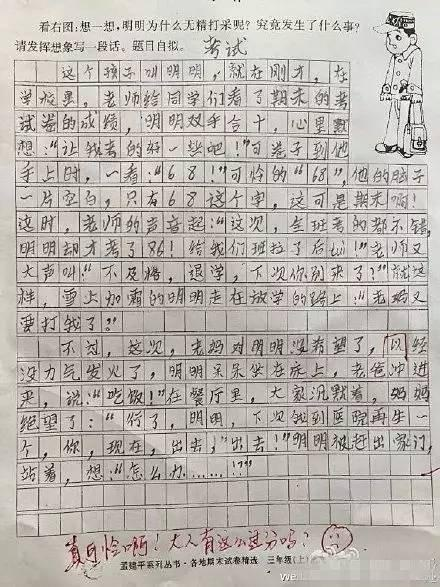 看右图:想一想,明明为什么无精打采呢?究竟发生了什么事?
请发挥想象写一段话。题目自拟。
考试
这个孩子叫明明,就在刚才,在
学校里,老师给同学们看了期末的考
试卷的成绩,明明双手合十,心里默
想:“让我考的好一些吧!”可卷子到他
手上时,一看:“68!”可怜的“68”,他的脑子
一片空白,只有68这个字,这可是期末啊!
这时,老师的声音起:“这次,全班考的都不错,
明明却才考了86!给我们班拉了后山!”老师又
大声叫:“不及格,退学,下次你别来了?”就这
样,雪上加霜的明明走在放学的路上:“老妈又
要打我了?”
不过,这次,老妈对明明没希望了,以经
没力气发火了,明明呆呆坐在床上,老爸冲进
来,说:“吃饭!”在餐厅里,大家沉默着,妈妈
绝望了:“行了,明明,下次我到医院再生一
个,你,现在,出去,”出去!”明明被赶出家门,
站着,想“怎么办……!?”
真可怜啊!大人有这么过分吗?
孟建平系列丛书·各地期末试卷精选 三年级(上)
we